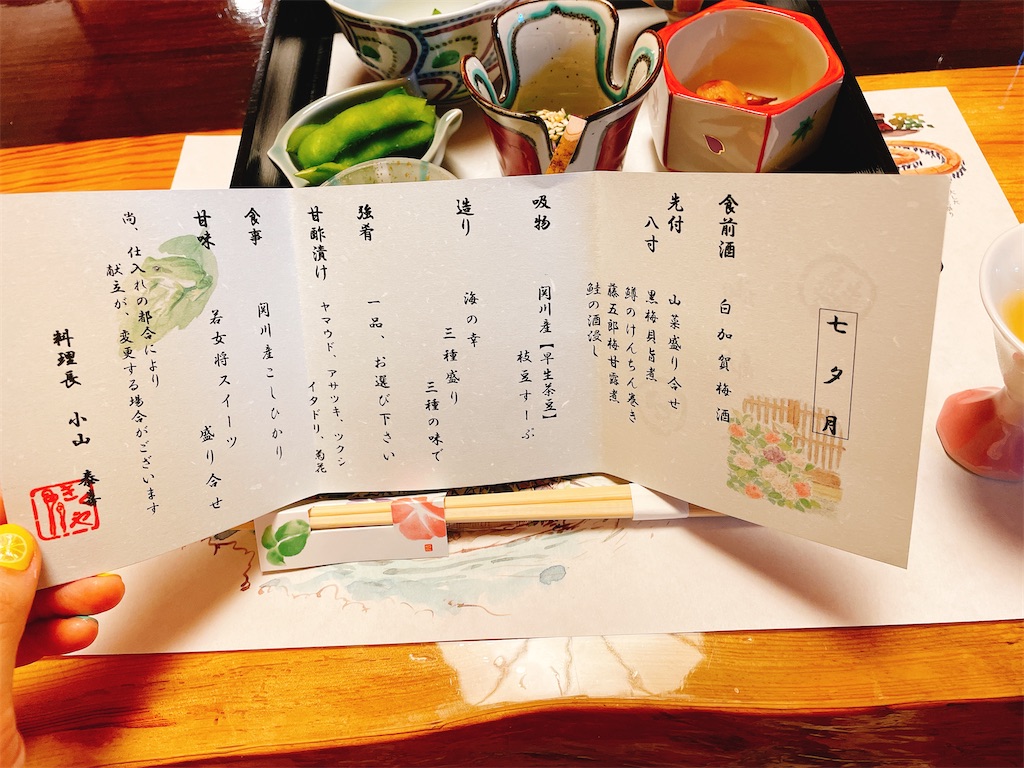 七夕月
食前酒 白加賀梅酒
先付 山菜盛り合せ
八寸 黒梅貝旨煮
鱒のけんちん巻き
藤五郎梅甘露煮
鮭の酒浸し
吸物 関川産【早生茶豆】
枝豆すーぷ
造り 海の幸
三種盛り
三種の味で
強肴 一品、お選び下さい
甘酢漬け ヤマウド、アサツキ、ツクシ
イタドリ、菊花
食事 関川産こしひかり
甘味 若女将スイーツ
盛り合せ
尚、仕入れの都合により
献立が、変更する場合がございます
料理長 小山